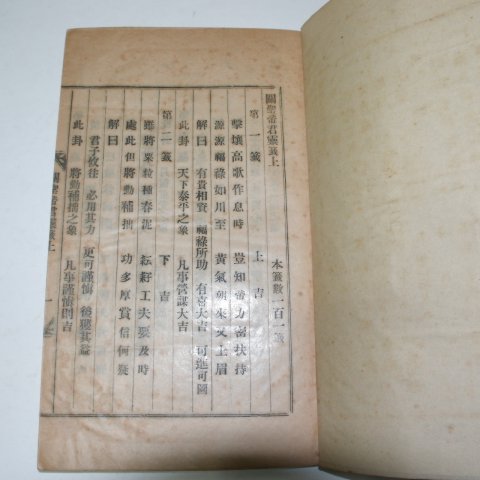 關聖帝君靈籤上
本籤數一百一籤
第一籤 上吉
擊壤高歌作息時 豈知帝力密扶持
源源福祿如川至 黃氣朝來又上眉
解曰 有貴相資 福祿所助 有喜大吉 可進可圖
此卦 天下泰平之象 凡事營謀大吉
第二籤 下吉
遲將粟粒種春泥 耘耔工夫要及時
處此但將勤補拙 功多厚賞信何疑
解曰 君子攸往 必用其方 更可謹慎 後獲其益
此卦 將勤補拙之象 凡事謹慎則吉
關聖帝君靈籤上 一